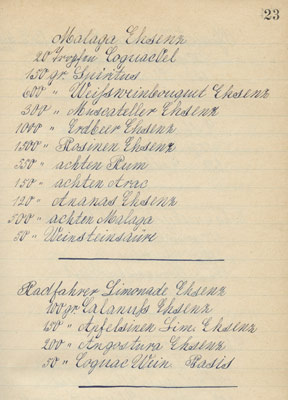 23
Malaga Ehsenz
20 Tropfen CognacOel
150 gr. Spiritus
600 " Weifsweinbouquet Ehsenz
300 " Muscateller Ehsenz
1000 " Erdbeer Ehsenz
1500 " Rosinen Ehsenz
350 " achten Rum
150 " achten Arac
120 " Ananas Ehsenz
500 " achten Malaga
50 " Weinsteinsäure
Radfahrer Limonade Ehsenz
100 gr. Calanufs Ehsenz
150 " Apfelsinen Lim. Ehsenz
200 " Angostura Ehsenz
50 " Cognac Wein Basis